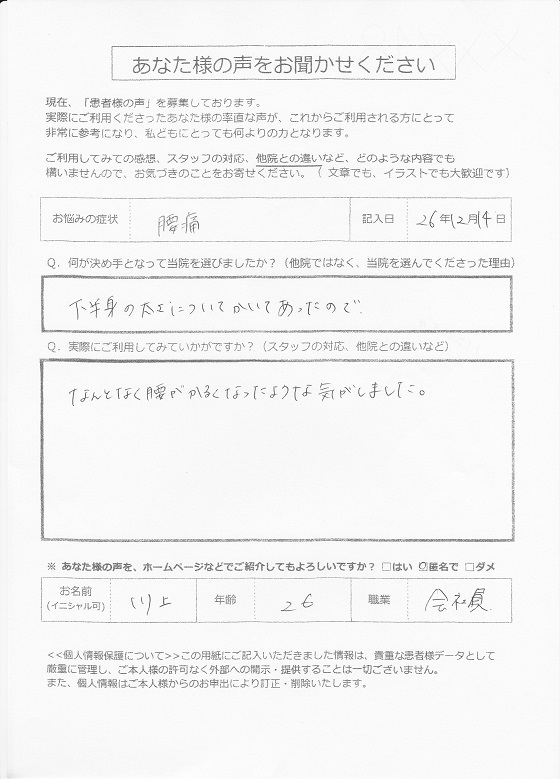 あなた様の声をお聞かせください
現在、「患者様の声」を募集しております。
実際にご利用くださったあなた様の率直な声が、これからご利用される方にとって
非常に参考になり、私どもにとっても何よりの力となります。
ご利用してみての感想、スタッフの対応、他院との違いなど、どのような内容でも
構いませんので、お気づきのことをお寄せください。（ 文章でも、イラストでも大歓迎です）
お悩みの症状 腰痛 記入日 26年12月14日
Q．何が決め手となって当院を選びましたか？（他院ではなく、当院を選んでくださった理由）
下半身の太さについてかいてあったので.
Q．実際にご利用してみていかがですか？（スタッフの対応、他院との違いなど）
なんとなく腰がかるくなったような気がしました。
※ あなた様の声を、ホームページなどでご紹介してもよろしいですか？ □はい ☑匿名で □ダメ
お名前 川上 年齢 26 職業 会社員
(イニシャル可)
<<個人情報保護について>>この用紙にご記入いただきました情報は、貴重な患者様データとして
厳重に管理し、ご本人様の許可なく外部への開示・提供することは一切ございません。
また、個人情報はご本人様からのお申出により訂正・削除いたします。